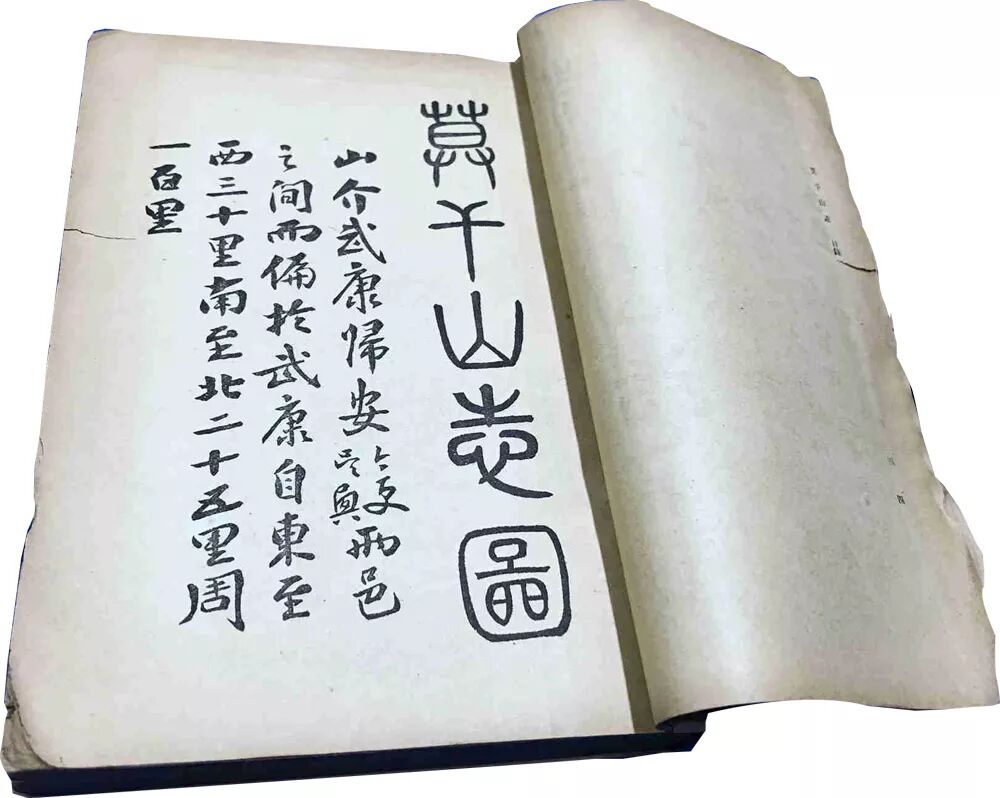 莫干山志圖
山介武康歸安今更吳興兩邑
之間而偏於武康自東至
西三十里南至北二十五里周
一百里
莫干山志 目錄
四